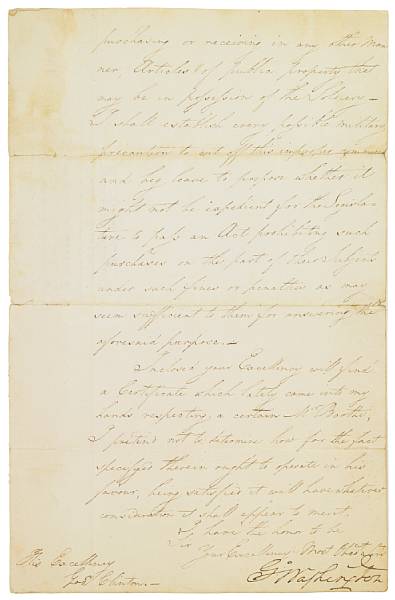 purchasing or receiving in any other Man
ner, Articles of public property that
may be in possession of the Soldiery—
I shall establish every possible military
precaution to cut off this improper
and beg leave to propose whether it
might not be expedient for the Legisla-
ture to pass an Act prohibiting such
purchases on the part of their Subjects
under such fines or penalties as may
seem sufficient to them for answering the
aforesaid purpose.—
Inclosed your Excellency will find
a Certificate which lately came into my
hands respecting a certain Mr
I pretend not to determine how far the fact
specified therein ought to operate in his
favour, being satisfied it will have whatever
consideration it shall appear to merit.
I have the honor to be
Sir
Your Excellency's Most Obedt
Go: Washington
His Excellency
Govr Clinton—